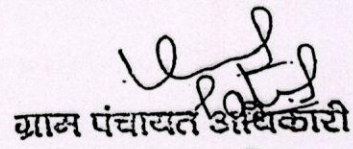 ग्राम पंचायत अधिकारी